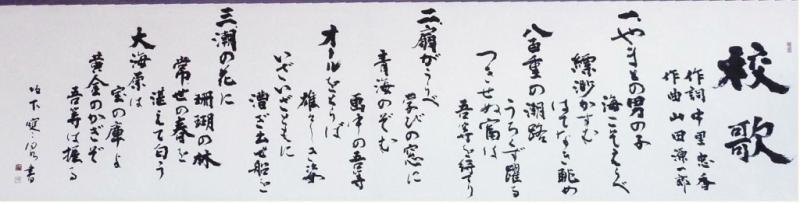 校歌
作詞 中里恭香
作曲 山田源一郎
一、やまとの男の子
海こそそらべ
縹渺かすむ
はてなき眺め
八百重の潮路
うろくず躍る
つきせぬ富は
吾等を待てり
二、扇がうらべ
学びの窓に
青海のぞむ
画中の吾等
オールをとらば
雄々しき姿
いざいざともに
漕ぎ出せ船を
三、潮の花に
珊瑚の林
常世の春を
湛えて匂う
大海原は
宝の庫よ
黄金のかぎぞ
吾等は振る
書